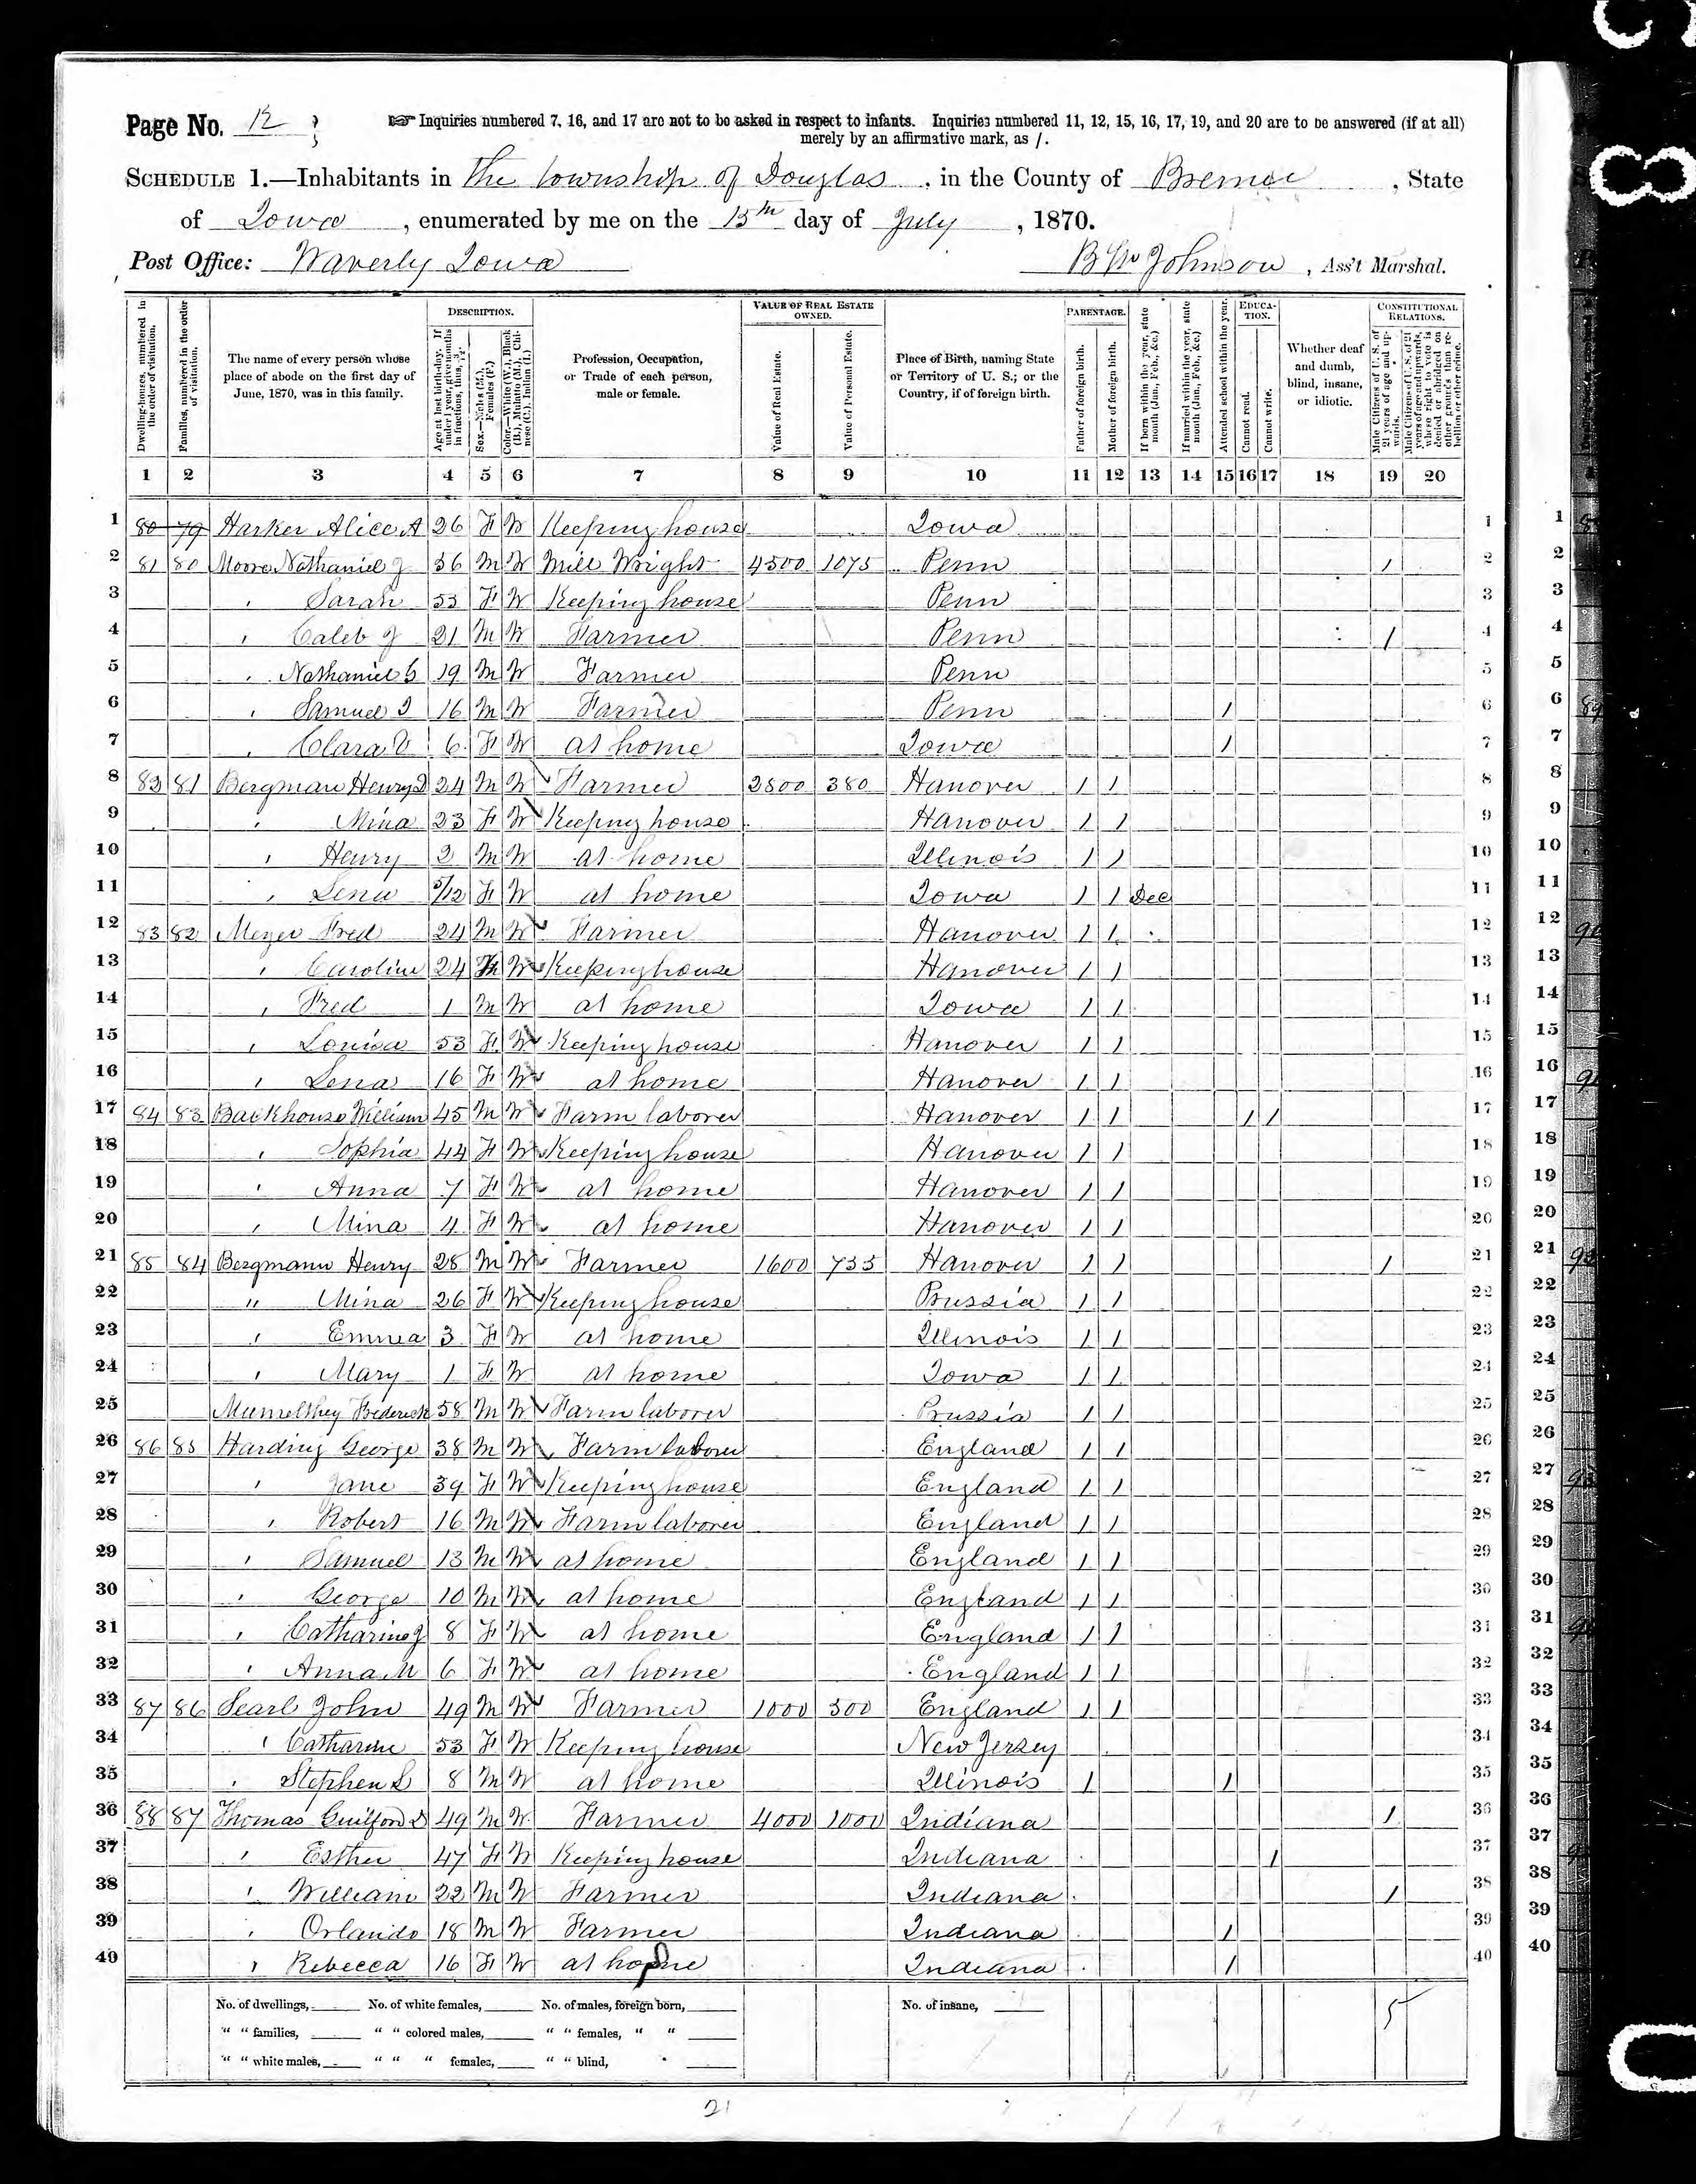 Page No. 12
☞ Inquiries numbered 7, 16, and 17 are not to be asked in respect to infants. Inquiries numbered 11, 12, 15, 16, 17, 19, and 20 are to be answered (if at all)
merely by an affirmative mark, as /.
SCHEDULE 1.—Inhabitants in the township of Douglas, in the County of Bremer, State
of Iowa, enumerated by me on the 15th day of July, 1870.
Post Office: Waverly Iowa Johnson, Ass't Marshal.
Dwelling-houses, numbered in the order of visitation.
Families, numbered in the order of visitation.
The name of every person whose place of abode on the first day of June, 1870, was in this family.
DESCRIPTION.
Age at last birth-day. If under 1 year, give months in fractions, thus, 3/12.
Sex.—Males (M.), Females (F.)
Color.—White (W.), Black (B.), Mulatto (M.), Chinese (C.), Indian (I.)
Profession, Occupation, or Trade of each person, male or female.
VALUE OF REAL ESTATE OWNED.
Value of Real Estate.
Value of Personal Estate.
Place of Birth, naming State or Territory of U. S.; or the Country, if of foreign birth.
PARENTAGE.
Father of foreign birth.
Mother of foreign birth.
If born within the year, state month (Jan., Feb., &c.)
If married within the year, state month (Jan., Feb., &c.)
Attended school within the year.
EDUCATION.
Cannot read.
Cannot write.
Whether deaf and dumb, blind, insane, or idiotic.
CONSTITUTIONAL RELATIONS.
Male Citizens of U. S. of 21 years of age and upwards.
Male Citizens of U. S. of 21 years of age and upwards, whose right to vote is denied or abridged on other grounds than rebellion or other crime.
1 2 3 4 5 6 7 8 9 10 11 12 13 14 15 16 17 18 19 20
1 80 79 Harker Alice A 26 F W Keeping house Iowa 1
2 81 80 Moore Nathaniel J 56 M W Mill Wright 4500 1075 Penn / 2
3 " Sarah 53 F W Keeping house Penn 3
4 " Caleb J 21 M W Farmer Penn / 4
5 " Nathaniel 19 M W Farmer Penn 5
6 " Samuel 16 M W Farmer Penn / 6
7 " Clara V 6 F W at home Iowa / 7
8 82 81 Bergman Henry D 24 M W Farmer 2500 380 Hanover / / 8
9 " Mina 23 F W Keeping house Hanover / / 9
10 " Henry 2 M W at home Illinois / / 10
11 " Lena /12 F W at home Iowa / / Dec 11
12 83 82 Meyer Fred 24 M W Farmer Hanover / / 12
13 " Caroline 24 F W Keeping house Hanover / / 13
14 " Fred 1 M W at home Iowa / / 14
15 " Louisa 53 F W Keeping house Hanover / / 15
16 " Lena 16 F W at home Hanover / / 16
17 84 83 Backhouse William 45 M W Farm laborer Hanover / / / / 17
18 " Sophia 44 F W Keeping house Hanover / / 18
19 " Anna 7 F W at home Hanover / / 19
20 " Mina 4 F W at home Hanover / / 20
21 85 84 Bergmann Henry 28 M W Farmer 1600 735 Hanover / / / 21
22 " Mina 26 F W Keeping house Prussia / / 22
23 " Emma 3 F W at home Illinois / / 23
24 " Mary 1 F W at home Iowa / / 24
25 Frederick 58 M W Farm laborer Prussia / / 25
26 86 85 Harding George 38 M W Farm laborer England / / 26
27 " Jane 39 F W Keeping house England / / 27
28 " Robert 16 M W Farm laborer England / / 28
29 " Samuel 13 M W at home England / / 29
30 " George 10 M W at home England / / 30
31 " Catharine J 8 F W at home England / / 31
32 " Anna M 6 F W at home England / / 32
33 87 86 Searl John 49 M W Farmer 1000 500 England / / 33
34 " Catharine 53 F W Keeping house New Jersey 34
35 " Stephen L 8 M W at home Illinois / / 35
36 88 87 Thomas Guilford D 49 M W Farmer 4000 1000 Indiana / 36
37 " Esther 47 F W Keeping house Indiana / 37
38 " William 22 M W Farmer Indiana / 38
39 " Orlando 18 M W Farmer Indiana / 39
40 " Rebecca 16 F W at home Indiana / 40
No. of dwellings, No. of white females, No. of males, foreign born, No. of insane, 5
" " families, " " colored males, " " females, " "
" " white males, " " " females, " " blind,
21